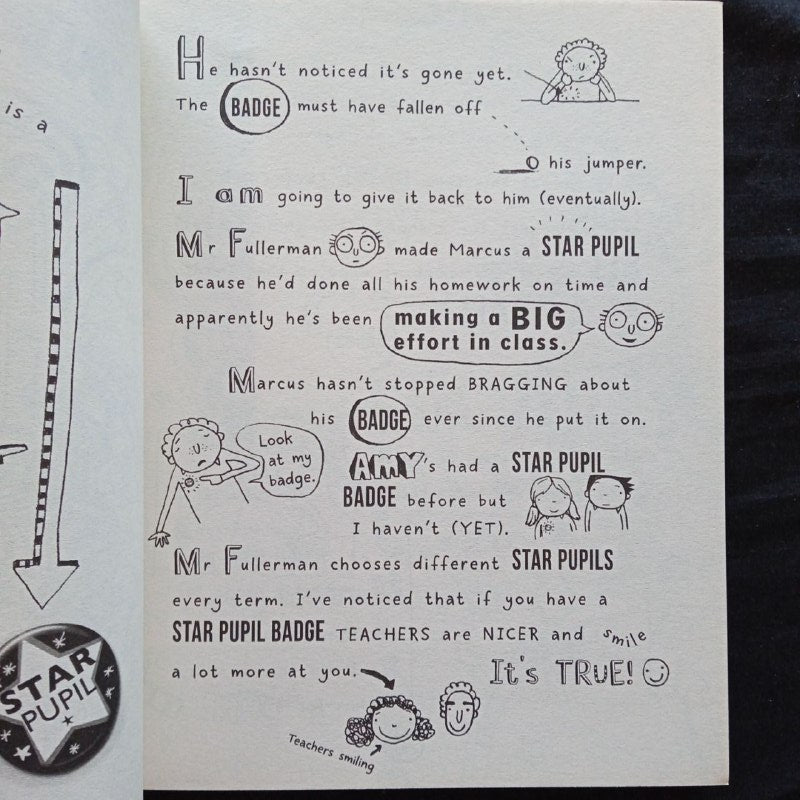 is a
STAR
PUPIL
He hasn't noticed it's gone yet.
The BADGE must have fallen off
his jumper.
I am going to give it back to him (eventually).
Mr Fullerman made Marcus a STAR PUPIL
because he'd done all his homework on time and
apparently he's been making a BIG
effort in class.
Marcus hasn't stopped BRAGGING about
his BADGE ever since he put it on.
Look
at my
badge.
AMY's had a STAR PUPIL
BADGE before but
I haven't (YET).
Mr Fullerman chooses different STAR PUPILS
every term. I've noticed that if you have a
STAR PUPIL BADGE TEACHERS are NICER and smile
a lot more at you. It's TRUE!
Teachers smiling